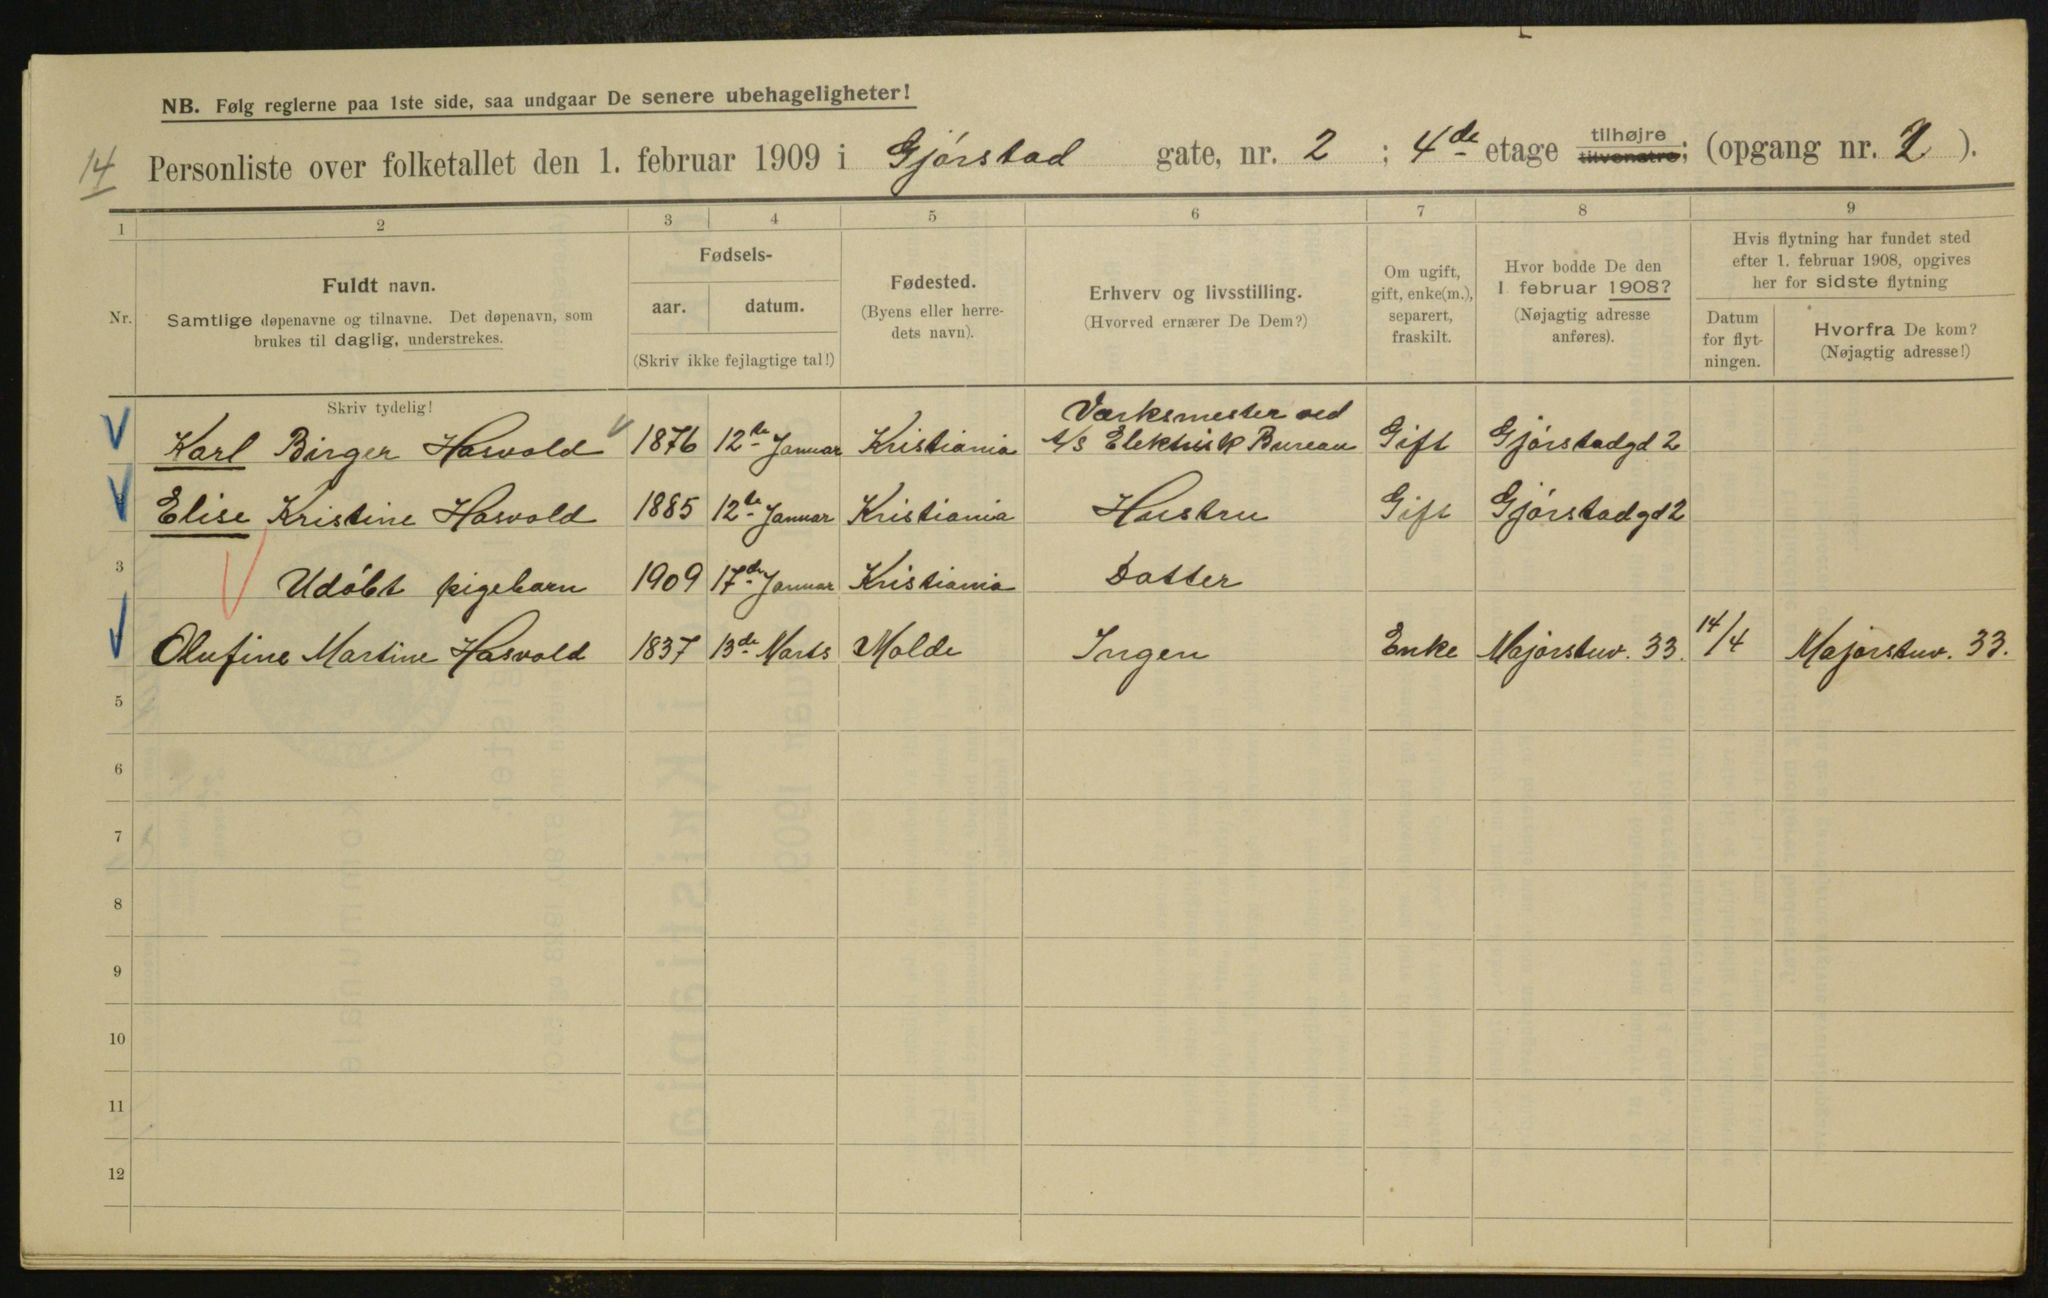 NB. Følg reglerne paa 1ste side, saa undgaar De senere ubehageligheter!
14 Personliste over folketallet den 1. februar 1909 i Gjørstad gate, nr. 2 ; 4de etage tilhøjre tilvenstre; (opgang nr. 2 ).
1 2 3 4 5 6 7 8 9
Nr.
Fuldt navn.
Samtlige døpenavne og tilnavne. Det døpenavn, som
brukes til daglig, understrekes.
Fødsels-
aar. datum.
(Skriv ikke fejlagtige tal!)
Fødested.
(Byens eller herre-
dets navn).
Erhverv og livsstilling.
(Hvorved ernærer De Dem?)
Om ugift,
gift, enke(m.),
separert,
fraskilt.
Hvor bodde De den
1 februar 1908?
(Nøjagtig adresse
anføres).
Hvis flytning har fundet sted
efter 1. februar 1908, opgives
her for sidste flytning
Datum
for flyt-
ningen.
Hvorfra De kom?
(Nøjagtig adresse!)
Skriv tydelig!
Karl Birger Hasvold 1876 12te Januar Kristiania Værksmester ved A/S Elektrisk Bureau Gift Gjørstadgd 2
Elise Kristine Hasvold 1885 12te Januar Kristiania Hustru Gift Gjørstadgd 2
3 Udøbt pigebarn 1909 17de Januar Kristiania Datter
Olufine Martine Hasvold 1837 13de Marts Molde Ingen Enke Majorstuv. 33. 14/4 Majorstuv. 33.
5
6
7
8
9
10
11
12